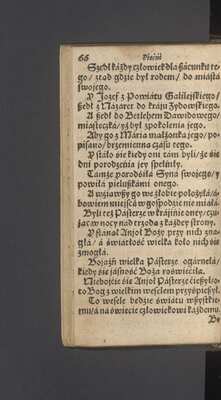 66 Pieśni
Szedł káżdy człowiek dla szácunku te-
go / zkąd gdzie był rodem / do miástá
swojego.
Y Jozef z Powiátu Gálilejskiego /
szedł z Názáret do kráju Żydowskiego.
A szedł do Betlehem Dawidowego /
miásteczká / yż był z pokolenia jego.
Aby go z Márią małżonką jego / po-
pisáno / brzemienną czásu tego.
Y sstało sie kiedy oni tám byli / że sie
dni porodzenia jey spełniły.
Támże porodziłá Syná swojego / y
powiłá pieluszkámi onego.
A wziąwszy go we żłobie położyłá / á-
bowiem mieyscá w gospodzie nie miáłá.
Byli też Pásterze w kráinie oney / czu-
jąc w nocy nád trzodą z káżdey strony.
Y stánął Anjoł Boży przy nich zna-
głá / á świátłość wielka koło nich sie
zmogłá.
Bojaźń wielka Pásterze ogárnęłá /
kiedy sie jásność Boża roświećiłá.
Nieboycie sie Anjoł Pásterze cieszył / o-
to Bog z wielkim weselem przyspieszył.
To wesele będzie światu wszystkie-
mu / á ná świecie człowiekowi káżdemu.